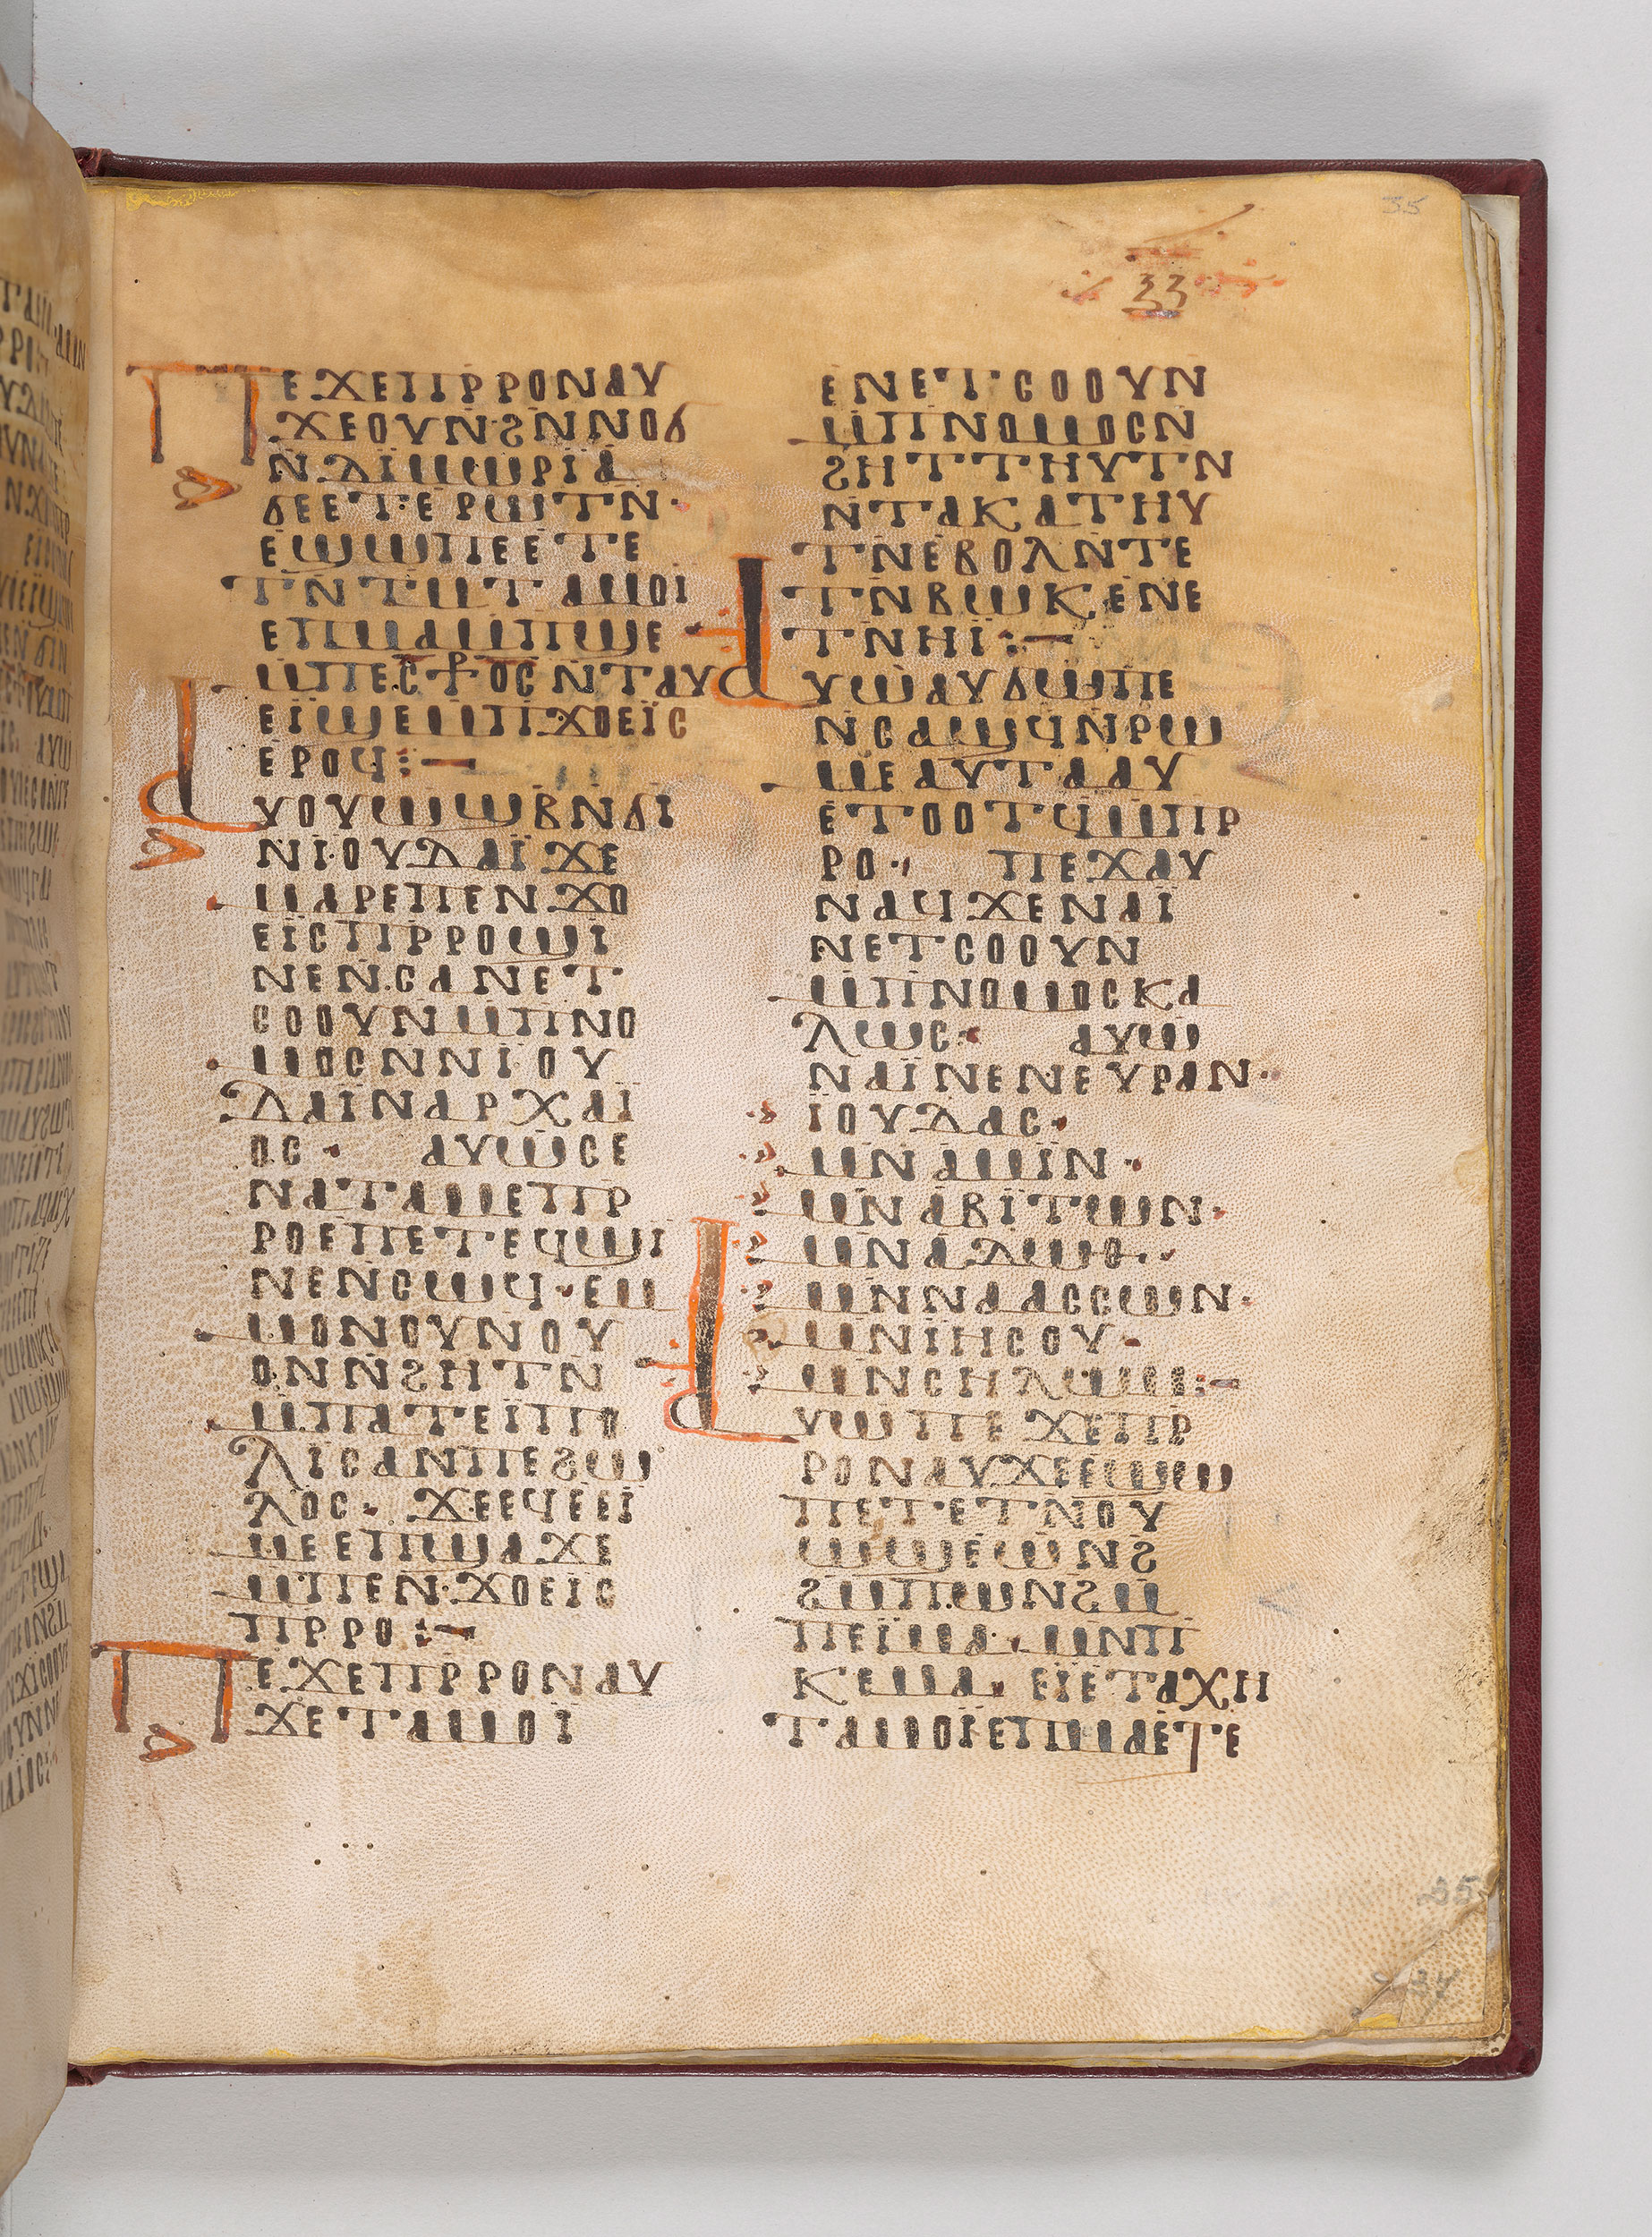 35
33
ⲠⲈϪⲈⲠⲢⲢⲞⲚⲀⲨ
ϪⲈⲞⲨⲚϨⲚⲚⲞϬ
ⲚⲆⲒⲘⲰⲢⲒⲀ
ϬⲈⲈⲦⲈⲢⲰⲦⲚ·
ⲈϢⲰⲠⲈⲈⲦⲈ
ⲦⲚⲦⲘⲦⲀⲘⲞⲒ
ⲈⲠⲘⲀⲘⲠϢⲈ
ⲘⲠⲈⲤ⳨ⲞⲤⲚⲦⲀⲨ
ⲈⲒϢⲈⲘⲠϪⲞⲈⲒⲤ
ⲈⲢⲞϤ:—
ⲀⲨⲞⲨⲰϢⲂⲚϬⲒ
ⲚⲒⲞⲨⲆⲀⲒϪⲈ
ⲘⲀⲢⲈⲠⲈⲚϪⲞ
ⲈⲒⲤⲠⲢⲢⲞϢⲒ
ⲚⲈⲚⲤⲀⲚⲈⲦ
ⲤⲞⲞⲨⲚⲘⲠⲚⲞ
ⲘⲞⲤⲚⲚⲒⲞⲨ
ⲆⲀⲒⲚⲀⲢⲬⲀⲒ
ⲞⲤ· ⲀⲨⲰⲤⲈ
ⲚⲀⲦⲀⲘⲈⲠⲢ
ⲢⲞⲈⲠⲈⲦⲈϤϢⲒ
ⲚⲈⲚⲤⲰϤ·ⲈⲘ
ⲘⲞⲚⲞⲨⲚⲞⲨ
ⲞⲚⲚϨⲎⲦⲚ
ⲘⲠⲀⲦⲈⲒⲠⲞ
ⲖⲒⲤⲀⲚⲠⲈϨⲰ
ⲖⲞⲤ· ϪⲈⲈϤⲈⲈⲒ
ⲘⲈⲈⲠϢⲀϪⲈ
ⲘⲠⲈⲚϪⲞⲈⲒⲤ
ⲠⲢⲢⲞ:—
ⲠⲈϪⲈⲠⲢⲢⲞⲚⲀⲨ
ϪⲈⲦⲀⲘⲞⲒ
ⲈⲚⲈⲦⲤⲞⲞⲨⲚ
ⲘⲠⲚⲞⲘⲞⲤⲚ
ϨⲎⲦⲦⲎⲨⲦⲚ
ⲚⲦⲀⲔⲀⲦⲎⲨ
ⲦⲚⲈⲂⲞⲖⲚⲦⲈ
ⲦⲚⲂⲰⲔⲈⲚⲈ
ⲦⲚⲎⲒ:—
ⲀⲨⲰⲀⲨϬⲰⲠⲈ
ⲚⲤⲀϢϤⲚⲢⲰ
ⲘⲈⲀⲨⲦⲀⲀⲨ
ⲈⲦⲞⲞⲦϤⲘⲠⲢ
ⲢⲞ· ⲠⲈϪⲀⲨ
ⲚⲀϤϪⲈⲚⲀⲒ
ⲚⲈⲦⲤⲞⲞⲨⲚ
ⲘⲠⲚⲞⲘⲞⲤⲔⲀ
ⲖⲰⲤ· ⲀⲨⲰ
ⲚⲀⲒⲚⲈⲚⲈⲨⲢⲀⲚ·
ⲒⲞⲨⲆⲀⲤ·
ⲘⲚⲀⲘⲒⲚ·
ⲘⲚⲀⲂⲒⲦⲰⲚ·
ⲘⲚⲚⲀⲀⲤⲤⲰⲚ·
ⲘⲚⲒⲎⲤⲞⲨ·
ⲘⲚⲤⲎⲖⲰⲘ:—
ⲀⲨⲰⲠⲈϪⲈⲠⲢ
ⲢⲞⲚⲀⲨϪⲈⲈϢⲰ
ⲠⲈⲦⲈⲦⲚⲞⲨ
ⲰϢⲈⲰⲚϨ
ϨⲘⲠⲰⲚϨⲘ
ⲠⲈⲒⲘⲀ·ⲘⲚⲠ
ⲔⲈⲘⲀ· ⲈⲒⲈⲦⲀⲬⲎ
ⲦⲀⲘⲞⲒⲈⲠⲘⲀⲈⲦⲈ
35
34